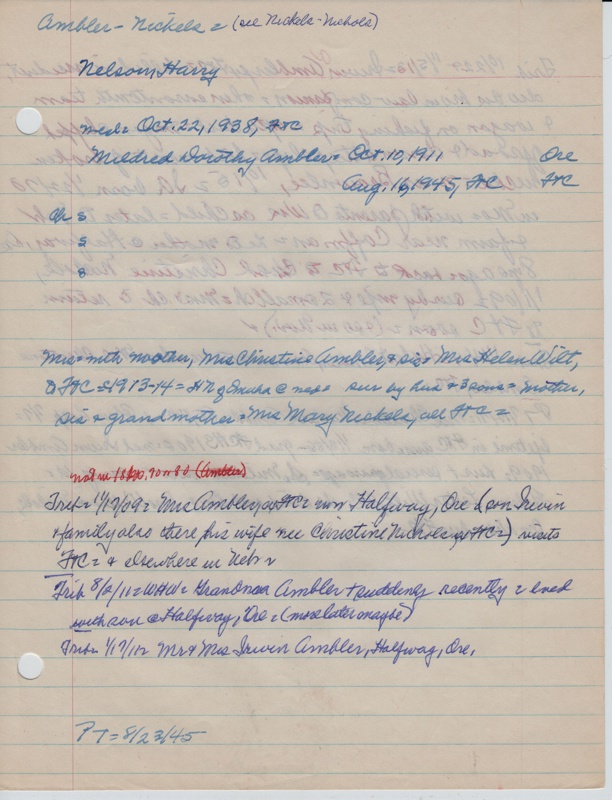 Ambler - Nickels = (see Nickels-Nichols)
Nelson, Harry
med = Oct. 22, 1938, FtC
Mildred Dorothy Ambler = Oct. 10, 1911 Ore
Aug. 16, 1945, FtC FtC
Ch s
s
s
Mrs = with mother, Mrs Christine Ambler, & sis = Mrs Helen Wilt,
to FtC = 1913-14 = sur by hus & 3 sons = mother,
sis & grandmother = Mrs Mary Nickels, all FtC =
not in 1870, 70 or 80 (Ambler)
Trib = 1/17/09 = Mrs Ambler, FtC = now Halfway, Ore = (son Irwin
& family also there, his wife nee Christine Nichols, FtC =) visits
FtC = & elsewhere in Neb =
Trib 8/2/11 = WHW = Grandma Ambler + pudding recently = lived
with son @ Halfway, Ore = (more later maybe)
Trib = 1/17/11 = Mr & Mrs Irwin Ambler, Halfway, Ore.
PT = 8/23/45